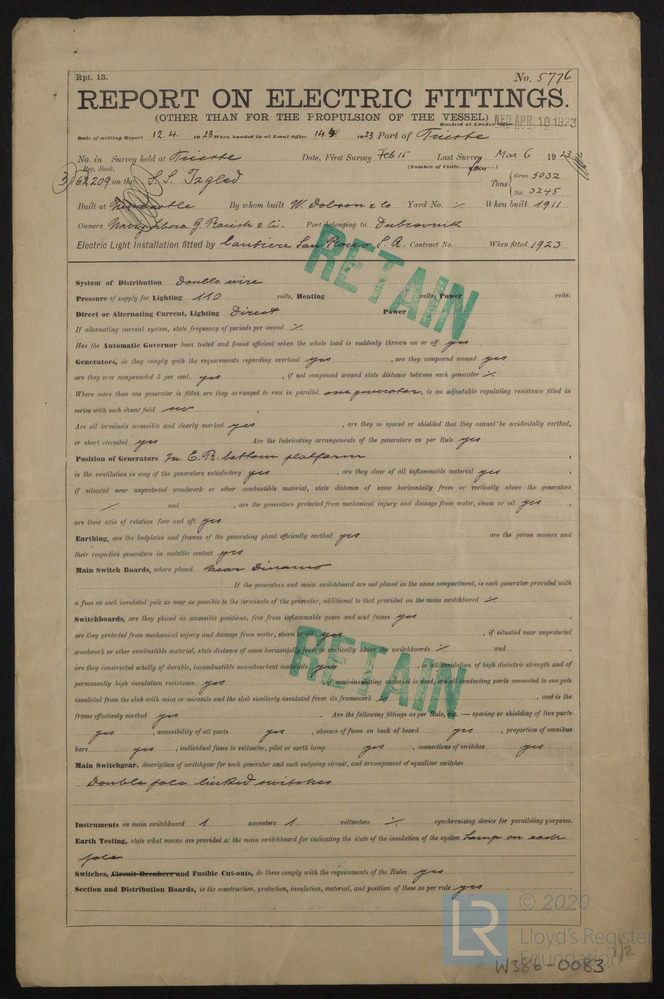 Rpt. 13.
No. 5776
REPORT ON ELECTRIC FITTINGS.
(OTHER THAN FOR THE PROPULSION OF THE VESSEL)
WED. APR. 18 1923
Received at London Office
Date of writing Report 12.4. 1923 When handed in at Local Office 14.4 1923 Port of Trieste
No. in Survey held at Trieste Date, First Survey Feb 15 Last Survey Mar 6 1923
Reg. Book. (Number of Visits four)
62209 on the S.S. Izgled Tons { Gross 5032
Net 3245
Built at Newcastle By whom built W. Dobson & Co Yard No. ⁒ When built 1911
Owners Port belonging to Dubrovnik
Electric Light Installation fitted by Cantiere San Rocco S.A. Contract No. When fitted 1923
RETAIN
System of Distribution Double wire
Pressure of supply for Lighting 110 volts, Heating volts, Power volts.
Direct or Alternating Current, Lighting Direct Power
If alternating current system, state frequency of periods per second ⁒
Has the Automatic Governor been tested and found efficient when the whole load is suddenly thrown on or off yes
Generators, do they comply with the requirements regarding overload yes , are they compound wound yes
are they over compounded 5 per cent. yes , if not compound wound state distance between each generator ⁒
Where more than one generator is fitted are they arranged to run in parallel one generator, is an adjustable regulating resistance fitted in
series with each shunt field no
Are all terminals accessible and clearly marked yes , are they so spaced or shielded that they cannot be accidentally earthed,
or short circuited yes Are the lubricating arrangements of the generators as per Rule yes
Position of Generators In E.R. bottom platform ,
is the ventilation in way of the generators satisfactory yes , are they clear of all inflammable material yes ,
if situated near unprotected woodwork or other combustible material, state distance of same horizontally from or vertically above the generators
⁒ and , are the generators protected from mechanical injury and damage from water, steam or oil yes ,
are their axis of rotation fore and aft yes
Earthing, are the bedplates and frames of the generating plant efficiently earthed yes are the prime movers and
their respective generators in metallic contact yes
Main Switch Boards, where placed near Dinamo
If the generators and main switchboard are not placed in the same compartment, is each generator provided with
a fuse on each insulated pole as near as possible to the terminals of the generator, additional to that provided on the main switchboard ⁒
Switchboards, are they placed in accessible positions, free from inflammable gases and acid fumes yes ,
are they protected from mechanical injury and damage from water, steam or oil yes , if situated near unprotected
woodwork or other combustible material, state distance of same horizontally from or vertically above the switchboards ⁒ and ,
are they constructed wholly of durable, incombustible non-absorbent materials yes , is all insulation of high dielectric strength and of
permanently high insulation resistance yes , if semi-insulating material is used, are all conducting parts connected to one pole
insulated from the slab with mica or micanite and the slab similarly insulated from its framework , and is the
frame effectively earthed yes . Are the following fittings as per Rule, viz.:— spacing or shielding of live parts
yes , accessibility of all parts yes , absence of fuses on back of board yes , proportion of omnibus
bars yes , individual fuses to voltmeter, pilot or earth lamp yes , connections of switches yes
RETAIN
Main Switchgear, description of switchgear for each generator and each outgoing circuit, and arrangement of equalizer switches
Double pole linked switches
Instruments on main switchboard 1 ammeters 1 voltmeters ⁒ synchronising device for paralleling purposes.
Earth Testing, state what means are provided at the main switchboard for indicating the state of the insulation of the system Lamp on each
pole
Switches, Circuit Breakers and Fusible Cut-outs, do these comply with the requirements of the Rules yes
Section and Distribution Boards, is the construction, protection, insulation, material, and position of these as per rule yes
LR
© 2020
Lloyd's Register
Foundation
W386-0083 1/2